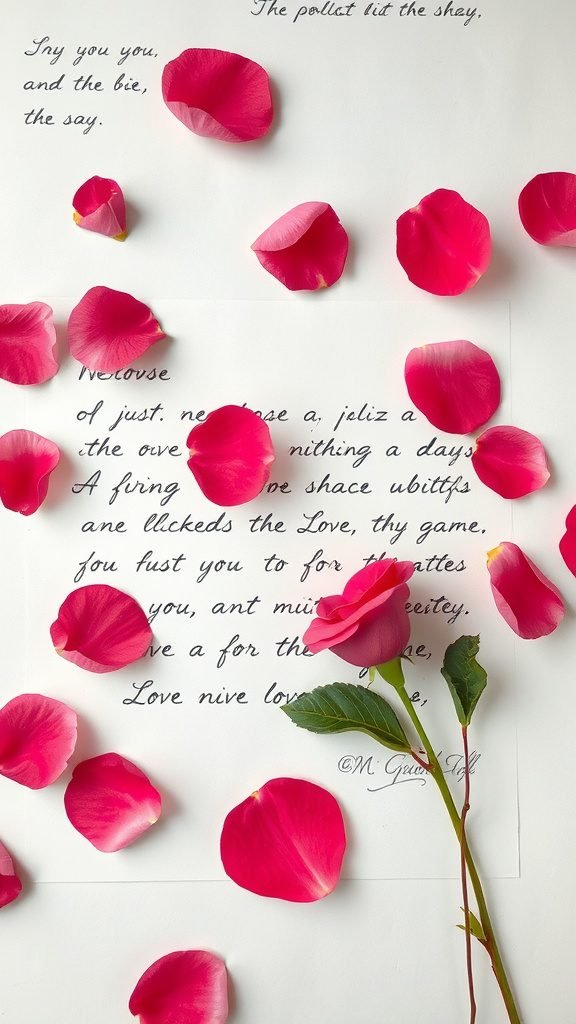 The pollct lit the shay,
Iny you you,
and the bie,
the say.
Nerouse
of just. a, joliz a
the ove nithing a days
A firing shace ubittfs
ane llickeds the Love, thy game.
fou fust you to for
you, ant
a for the
Love nive love
©M.